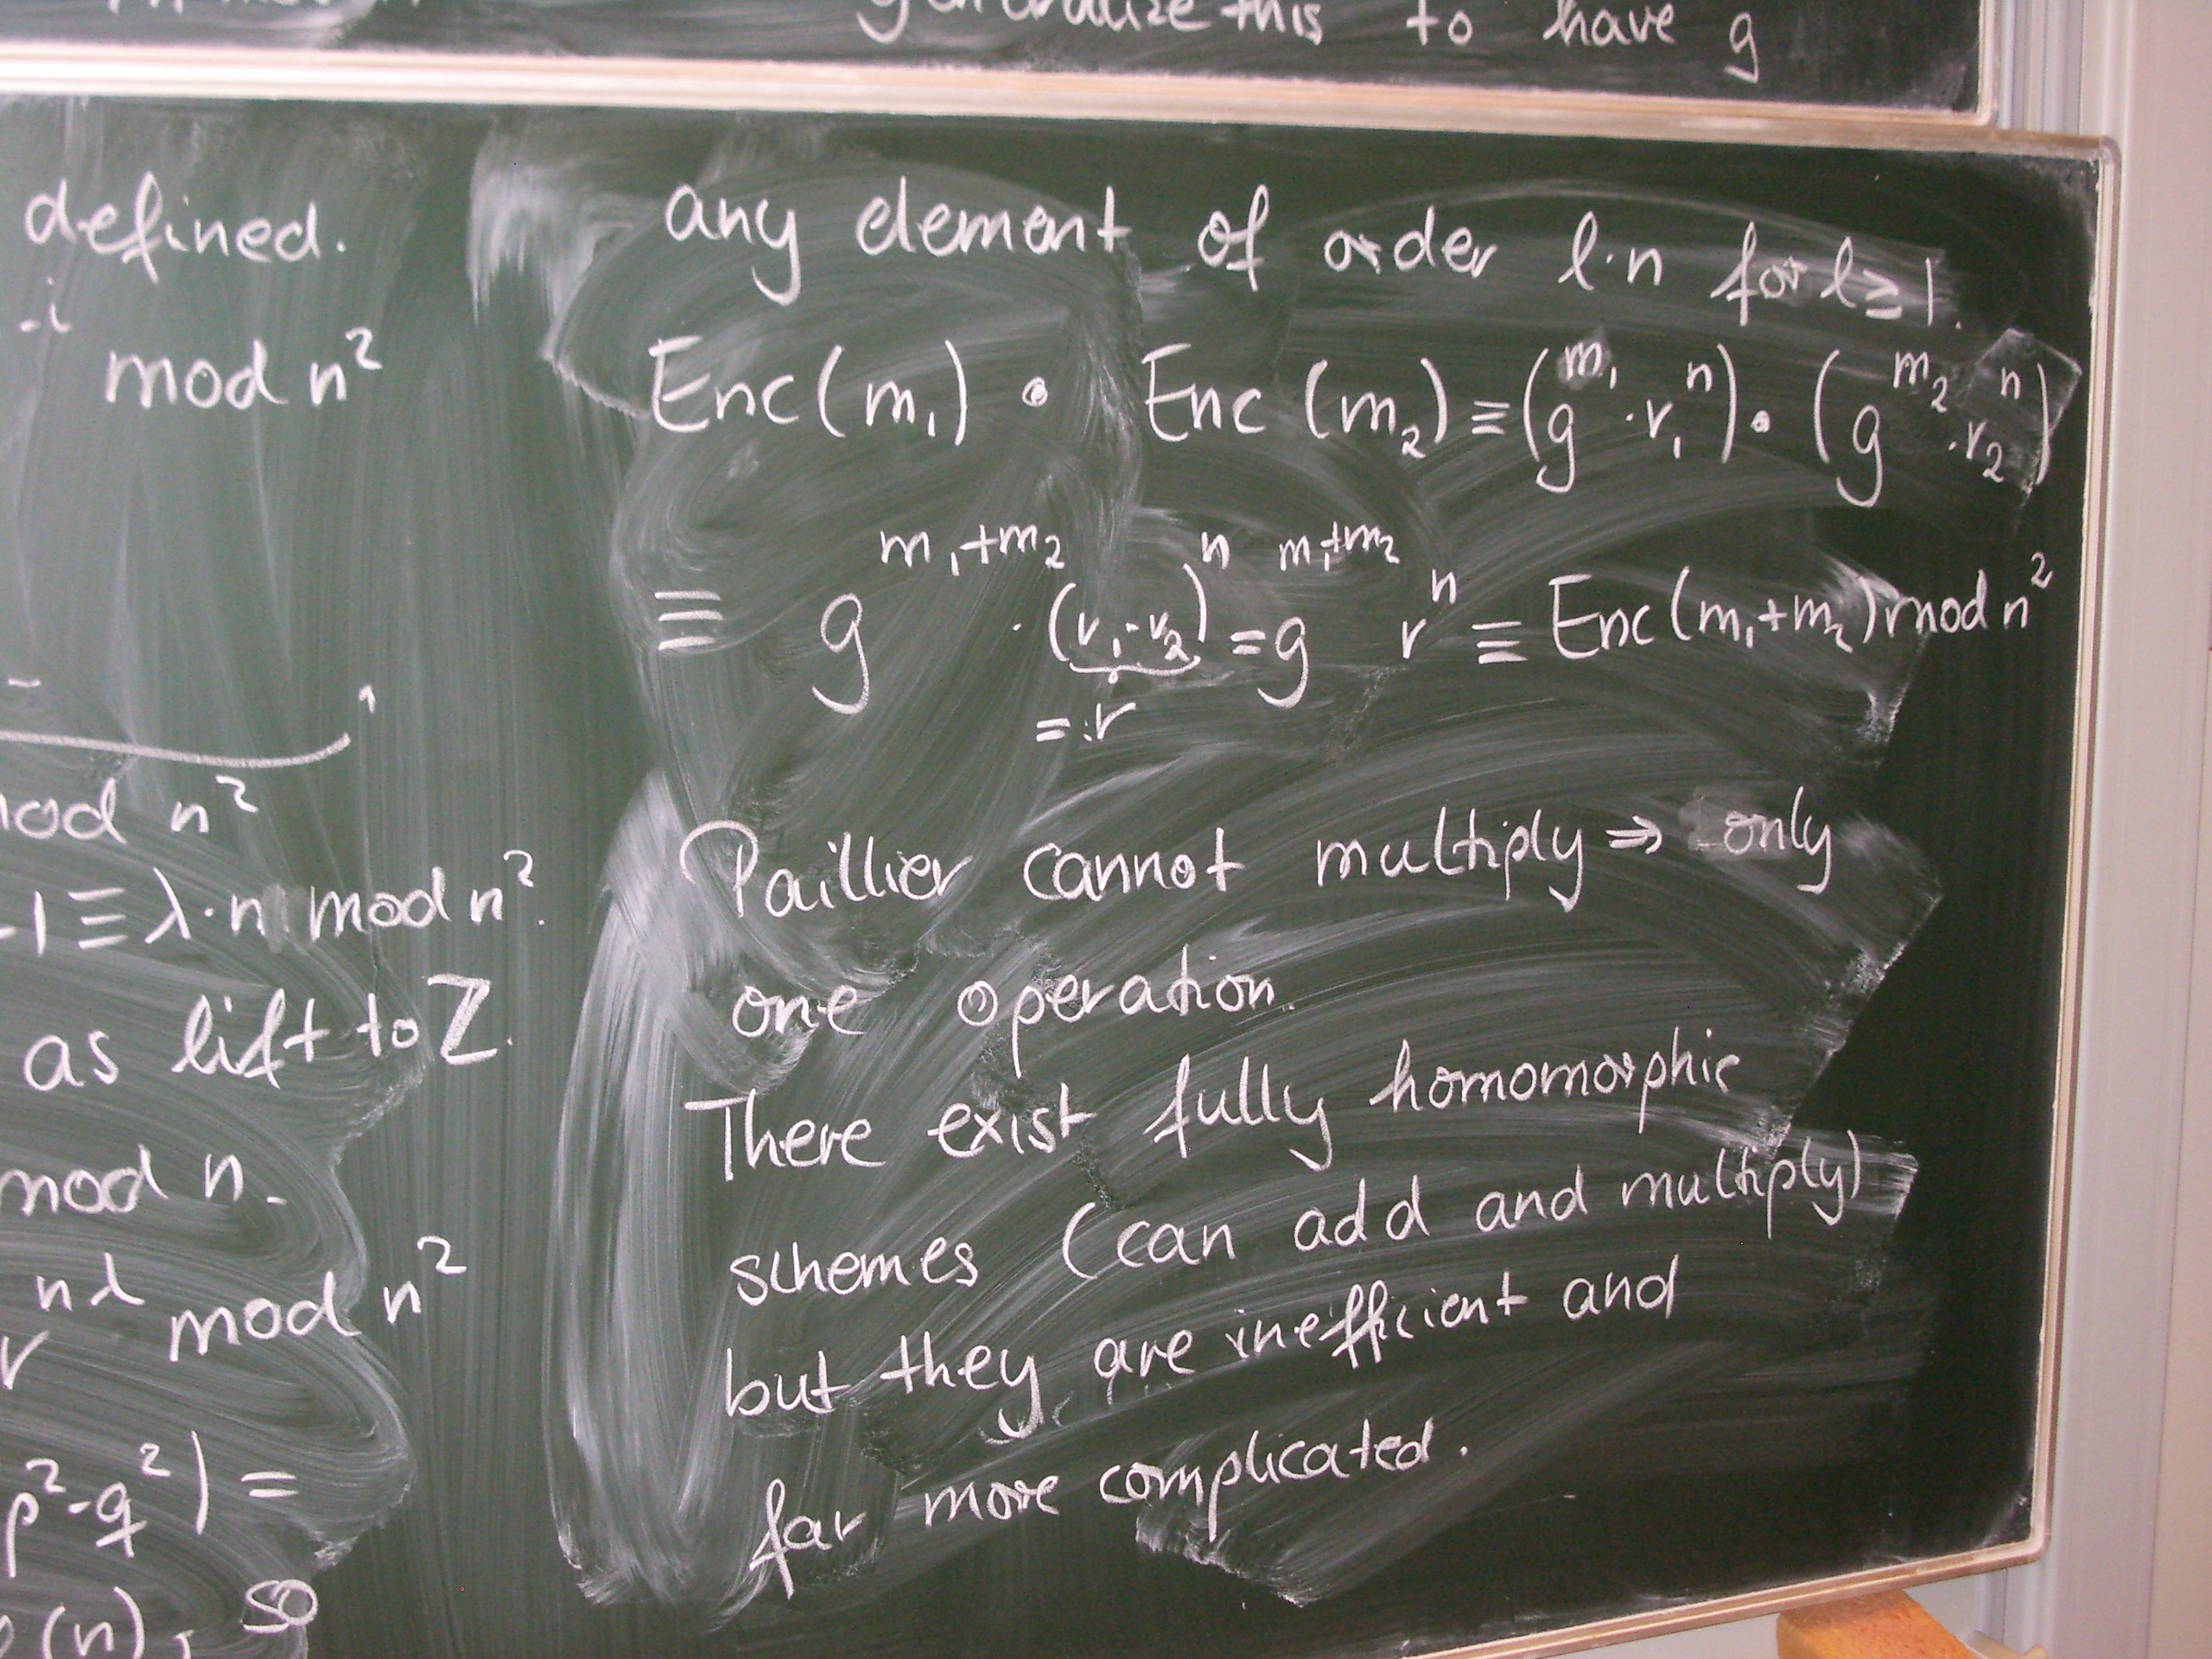 generalize this to have g
defined.
-i
mod n²
mod n²
-1 ≡ λ·n mod n².
as lift to Z.
mod n.
nλ
r mod n²
p²·q²) =
(n), so
any element of order l·n for l≥1.
Enc(m₁) • Enc(m₂) ≡ (g^m₁ · r₁^n) • (g^m₂ · r₂^n)
≡ g^(m₁+m₂) · (r₁·r₂)^n = g^(m₁+m₂) r^n ≡ Enc(m₁+m₂) mod n²
=: r
Paillier cannot multiply ⇒ only
one operation.
There exist fully homomorphic
schemes (can add and multiply)
but they are inefficient and
far more complicated.